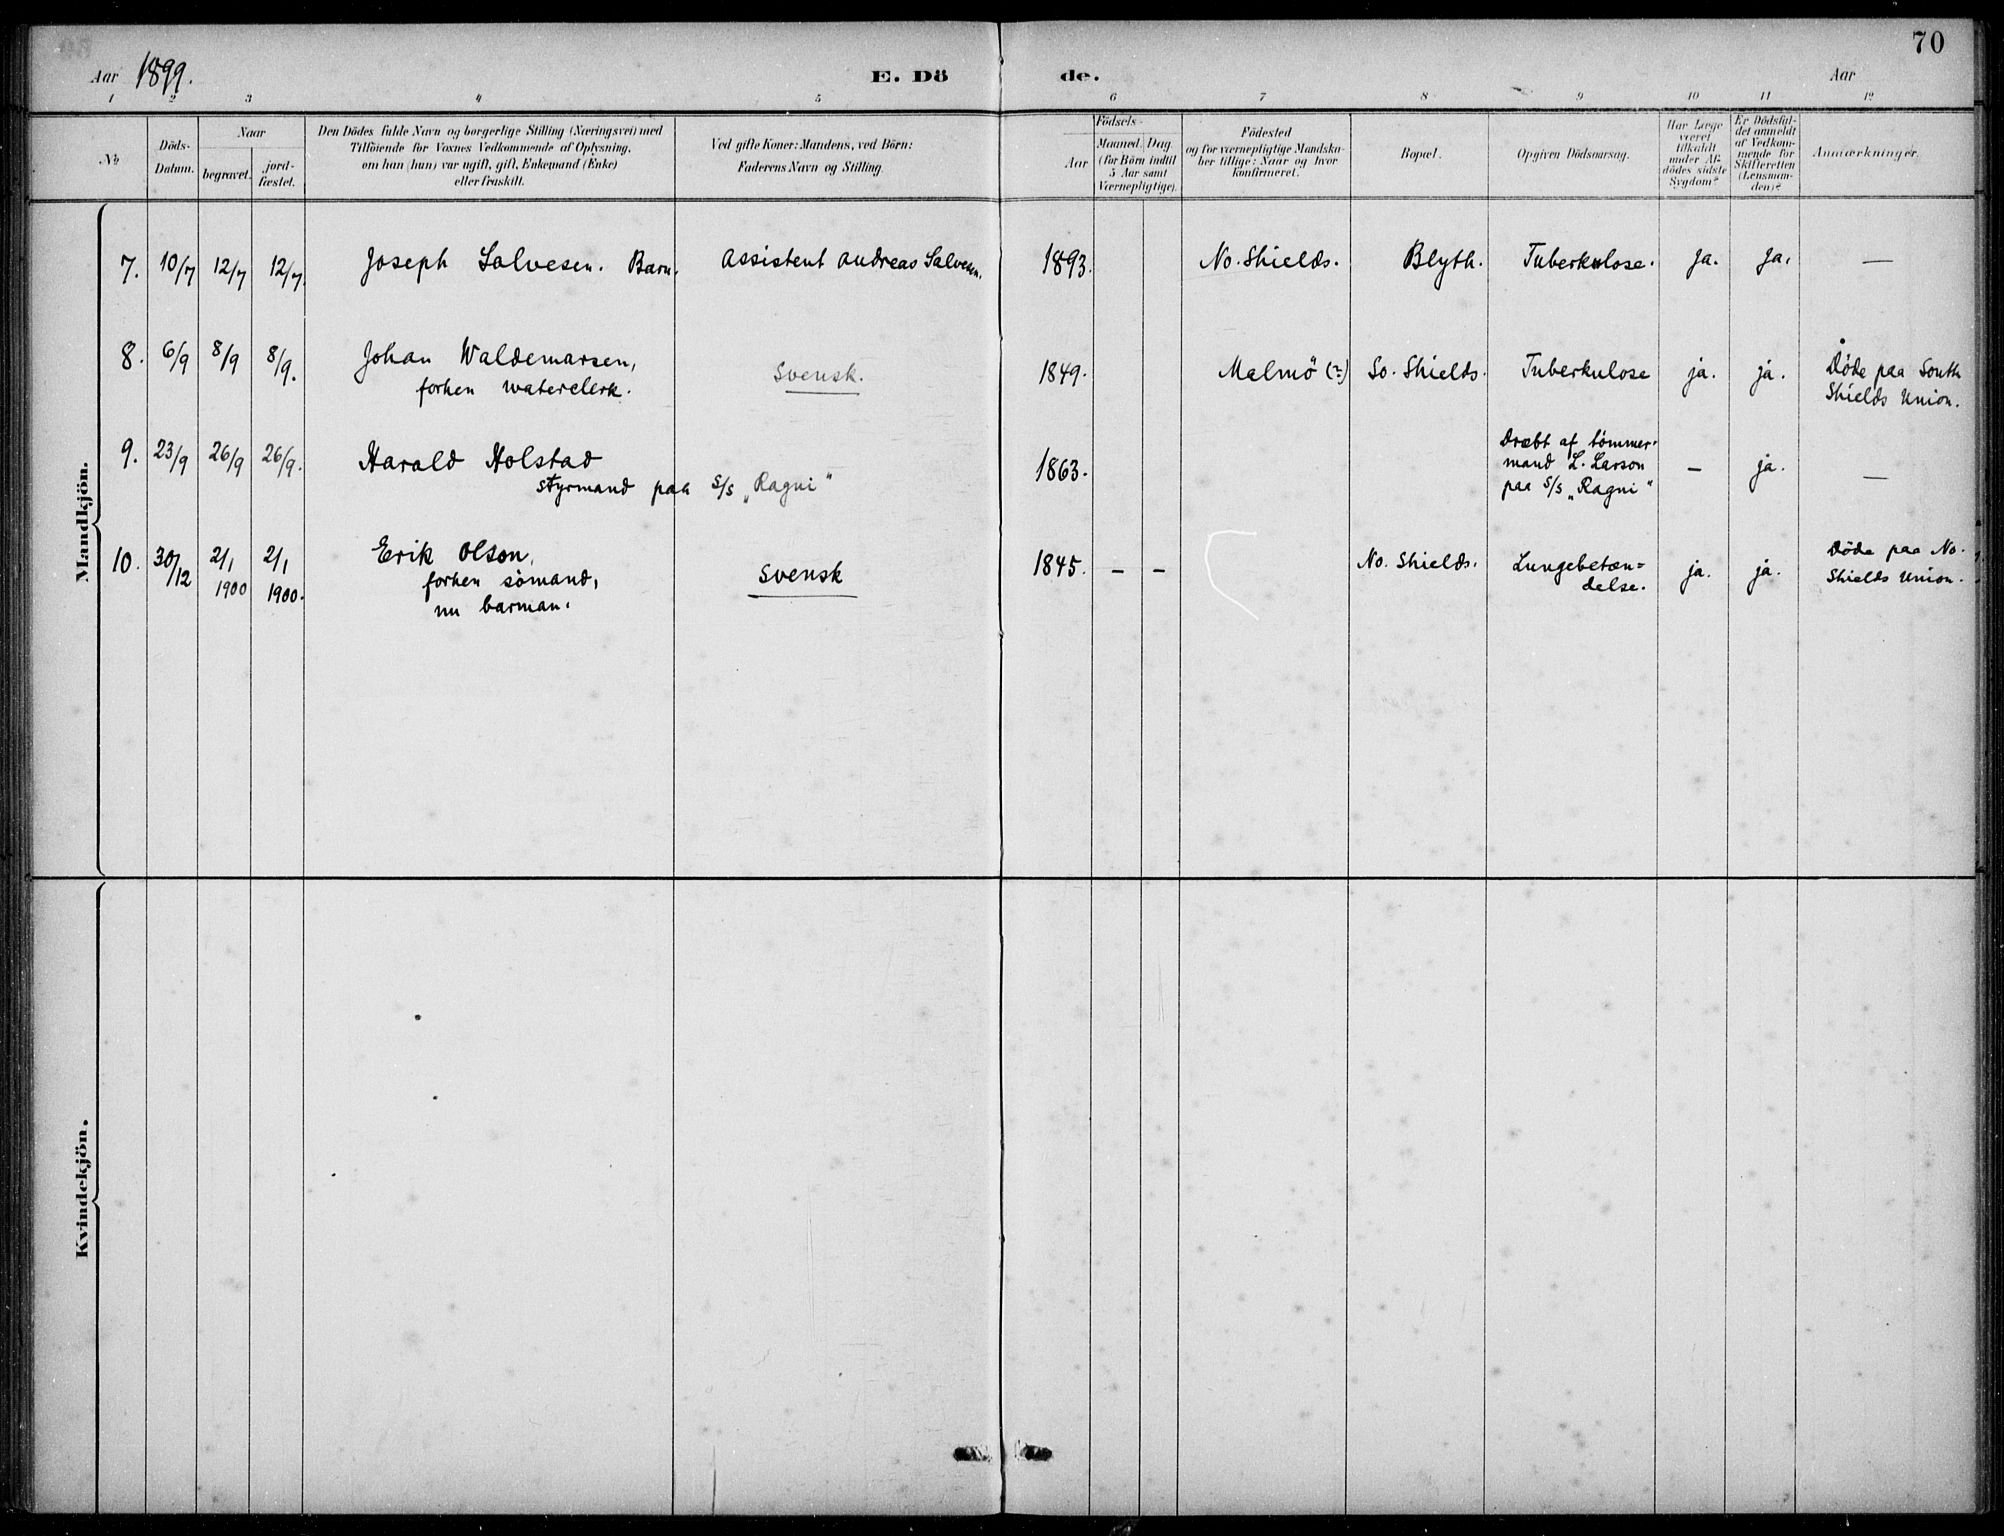 70
Aar 1899. E. Dö de. Aar
1 2 3 4 5 6 7 8 9 10 11 12
№
Döds-
Datum.
Naar
begravet.
jord-
fæstet.
Den Dödes fulde Navn og borgerlige Stilling (Næringsvei) med
Tilföiende for Voxnes Vedkommende af Oplysning,
om han (hun) var ugift, gift, Enkemand (Enke)
eller fraskilt.
Ved gifte Koner: Mandens, ved Börn:
Faderens Navn og Stilling.
Födsels-
Aar
Maaned. Dag.
(for Börn indtil
5 Aar samt
Værnepligtige).
Födested
og for værnepligtige Mandska-
ber tillige: Naar og hvor
konfirmeret.
Bopæl.
Opgiven Dödsaarsag.
Har Læge
været
tilkaldt
under Af-
dödes sidste
Sygdom?
Er Dödsfal-
det anmeldt
af Vedkom-
mende for
Skifteretten
(Lensman-
den)?
Anmærkninger.
Mandkjön.
7. 10/7 12/7 12/7. Joseph Salvesen. Barn. Assistent Andreas Salvesen. 1893. No. Shields. Blyth. Tuberkulose. ja. ja. —
8. 6/9 8/9 8/9. Johan Waldemarsen,
forhen waterclerk. Svensk. 1849. Malmö (?) So. Shields. Tuberkulose ja. ja. Døde paa South
Shields Union.
9. 23/9 26/9 26/9. Harald Holstad
styrmand paa S/s „Ragni“ 1863. Dræbt af tømmer-
mand L. Larson
paa S/s „Ragni“ — ja. —
10. 30/12 2/1
1900 2/1
1900. Erik Olson,
forhen sömand,
nu barman. Svensk 1845. — — No. Shields. Lungebetæn=
delse. ja. ja. Døde paa No.
Shields Union.
Kvindekjön.